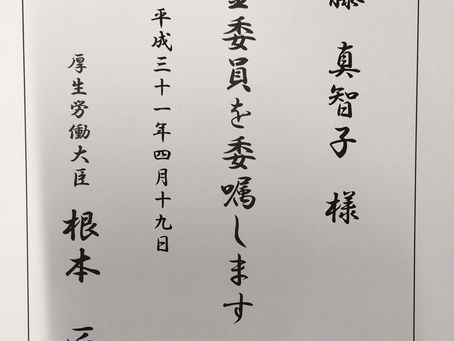 真智子 様
委員を委嘱します
平成三十一年四月十九日
厚生労働大臣 根本